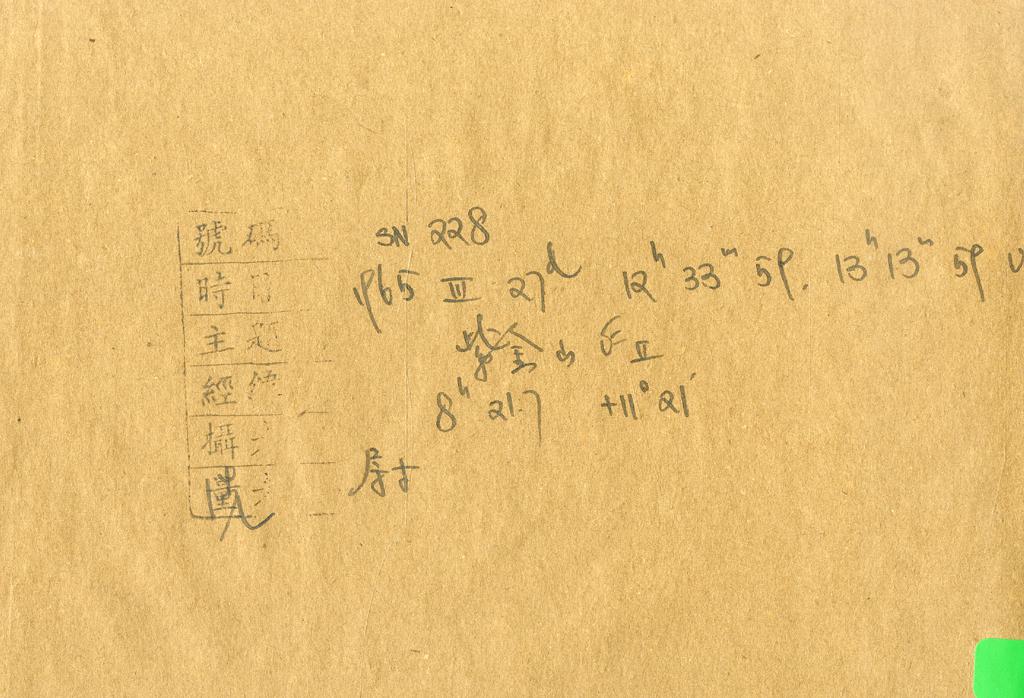 號碼 SN 228
時日 1965 III 27d 12h 33m 59. 13h 13m 59 U
主題 紫金山 II
經緯 8h 21.7 +11° 21'
攝